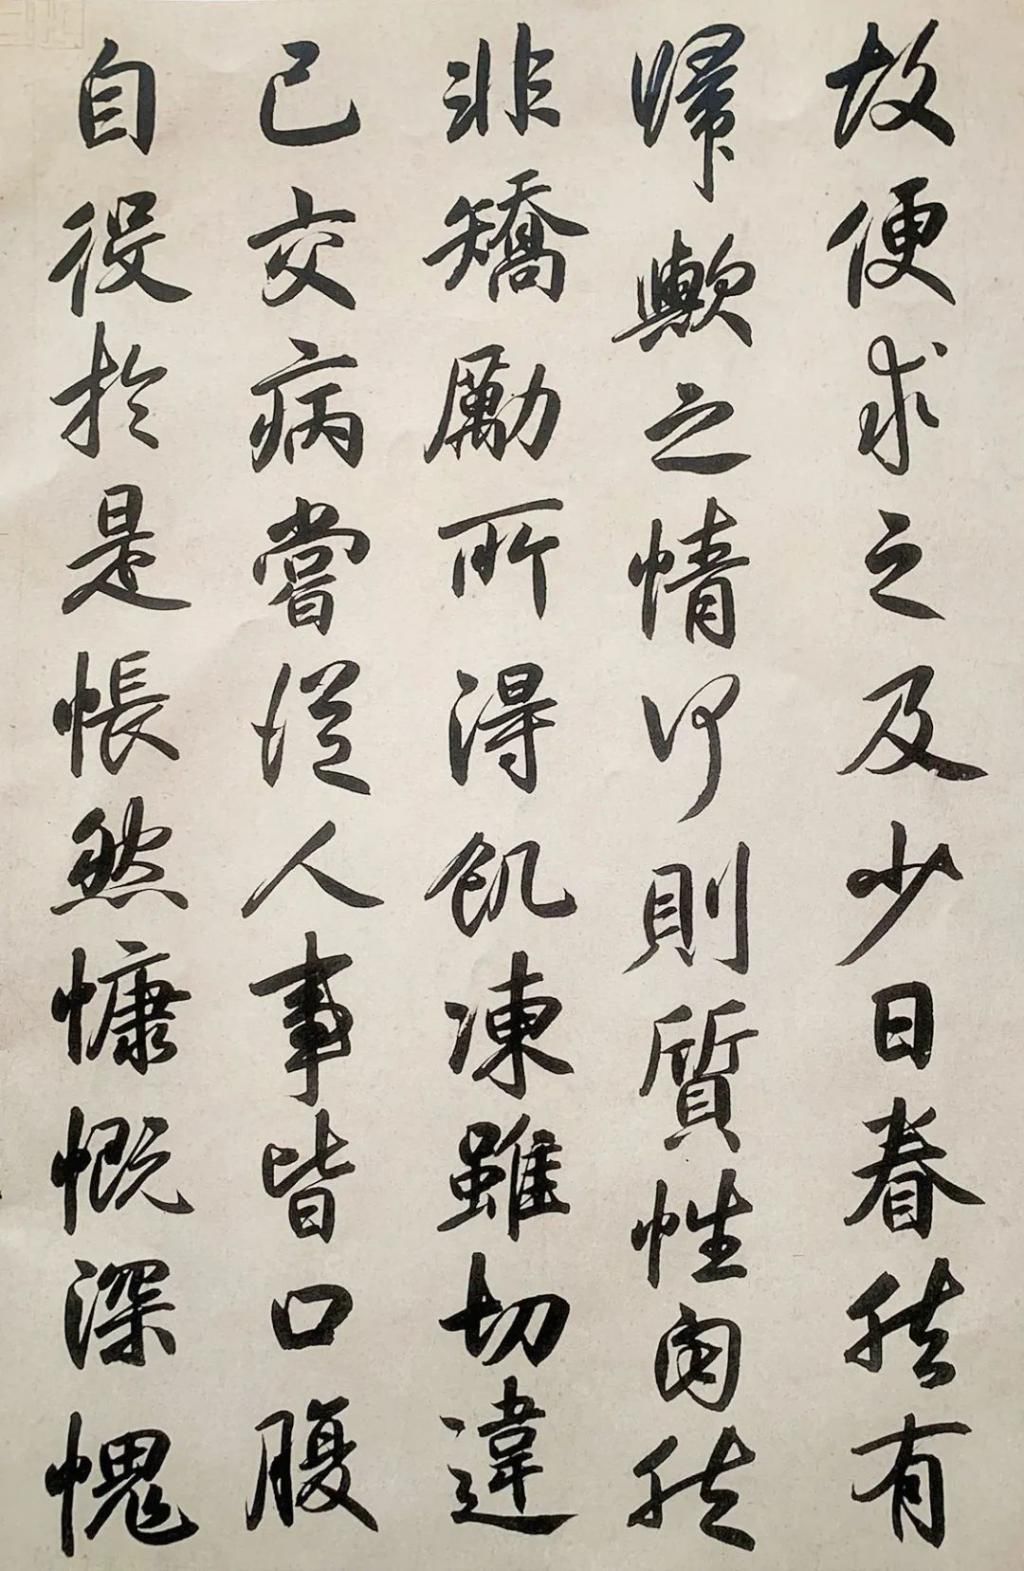 故便求之及少日眷然有
帰歟之情何則質性自然
非矯勵所得飢凍雖切違
己交病嘗從人事皆口腹
自役於是悵然慷慨深愧